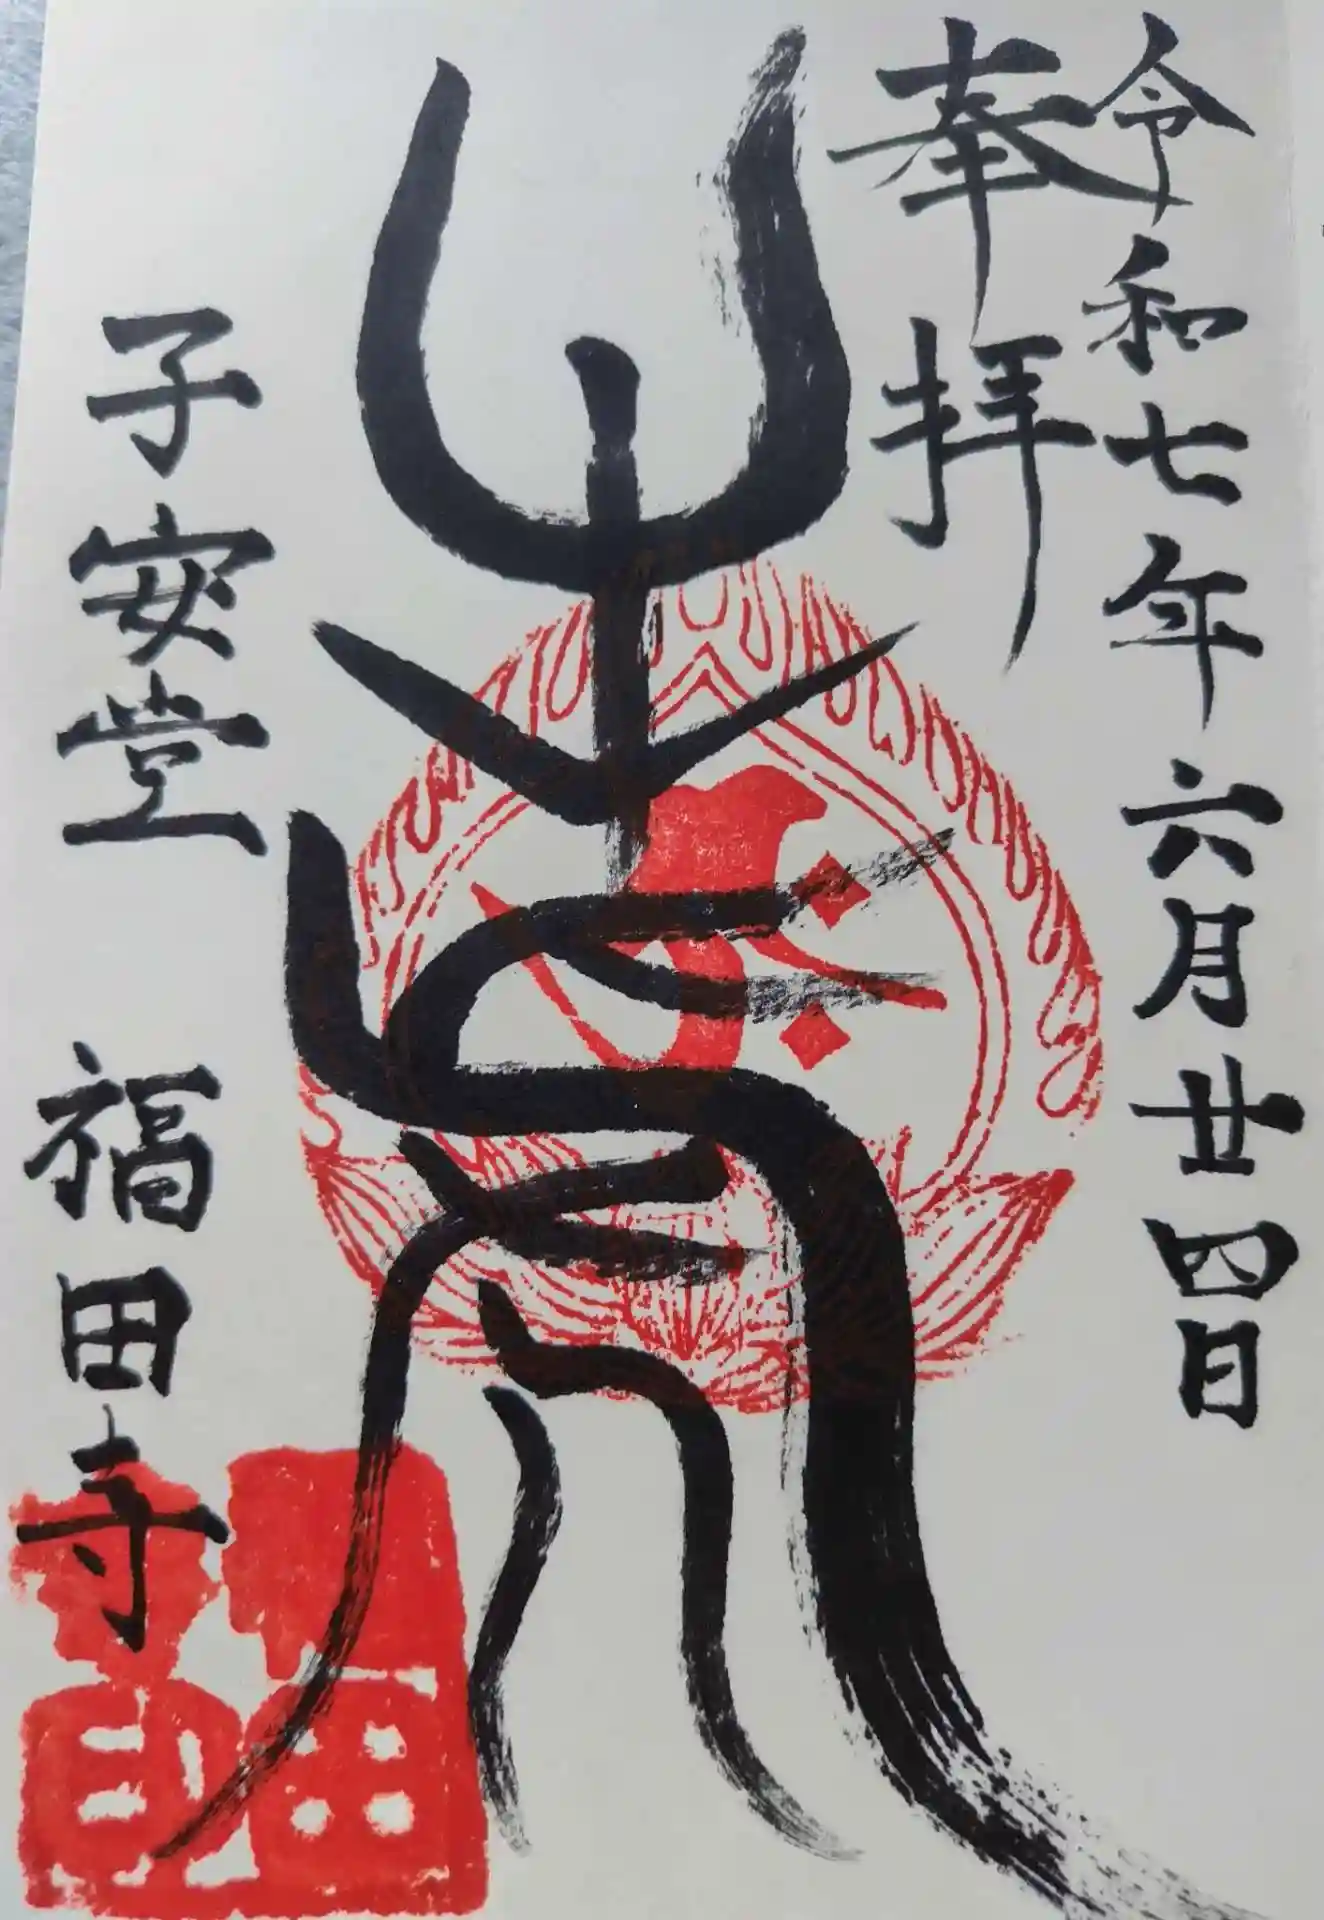 令和七年六月廿四日
奉拝
子安堂 福田寺